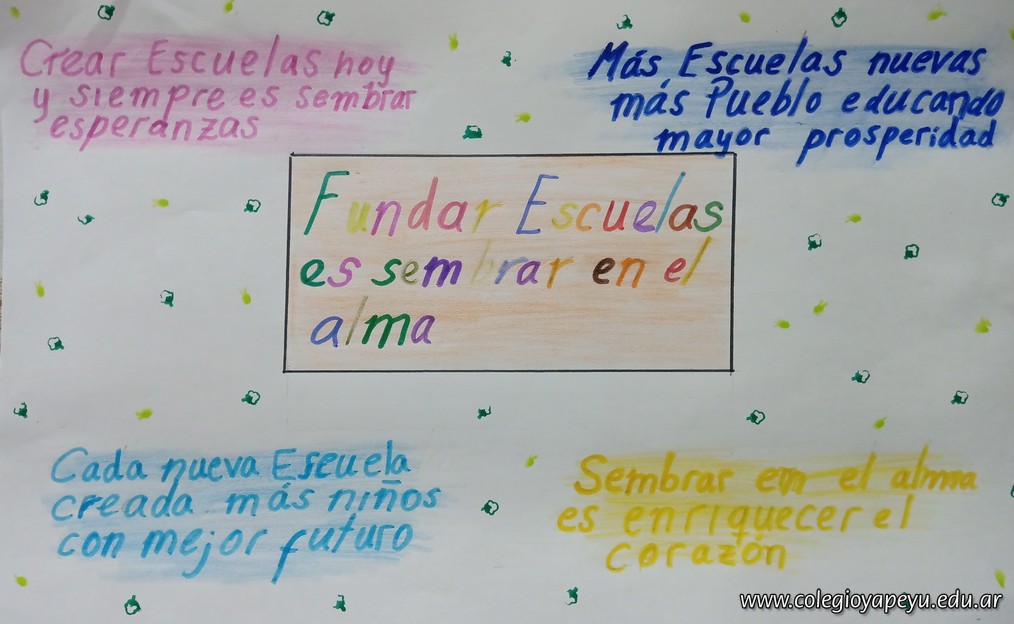 Crear Escuelas hoy
y siempre es sembrar
esperanzas
Más Escuelas nuevas
más Pueblo educando
mayor prosperidad
Fundar Escuelas
es sembrar en el
alma
Cada nueva Escuela
creada más niños
con mejor futuro
Sembrar en el alma
es enriquecer el
corazón
www.colegioyapeyu.edu.ar